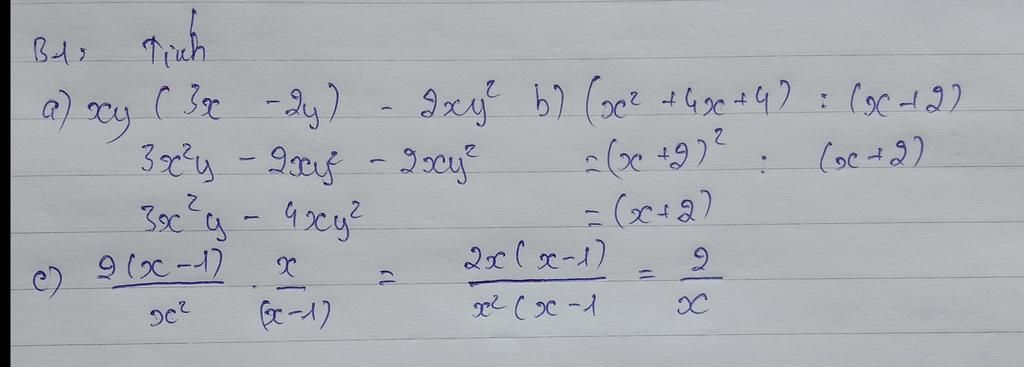 B1: Tính
a) xy (3x - 2y) - 2xy² b) (x² + 4x + 4) : (x + 2)
3x²y - 2xy² - 2xy² = (x + 2)² : (x + 2)
3x²y - 4xy² = (x + 2)
c) 2(x - 1)/x² . x/(x - 1) = 2x(x - 1)/x²(x - 1 = 2/x